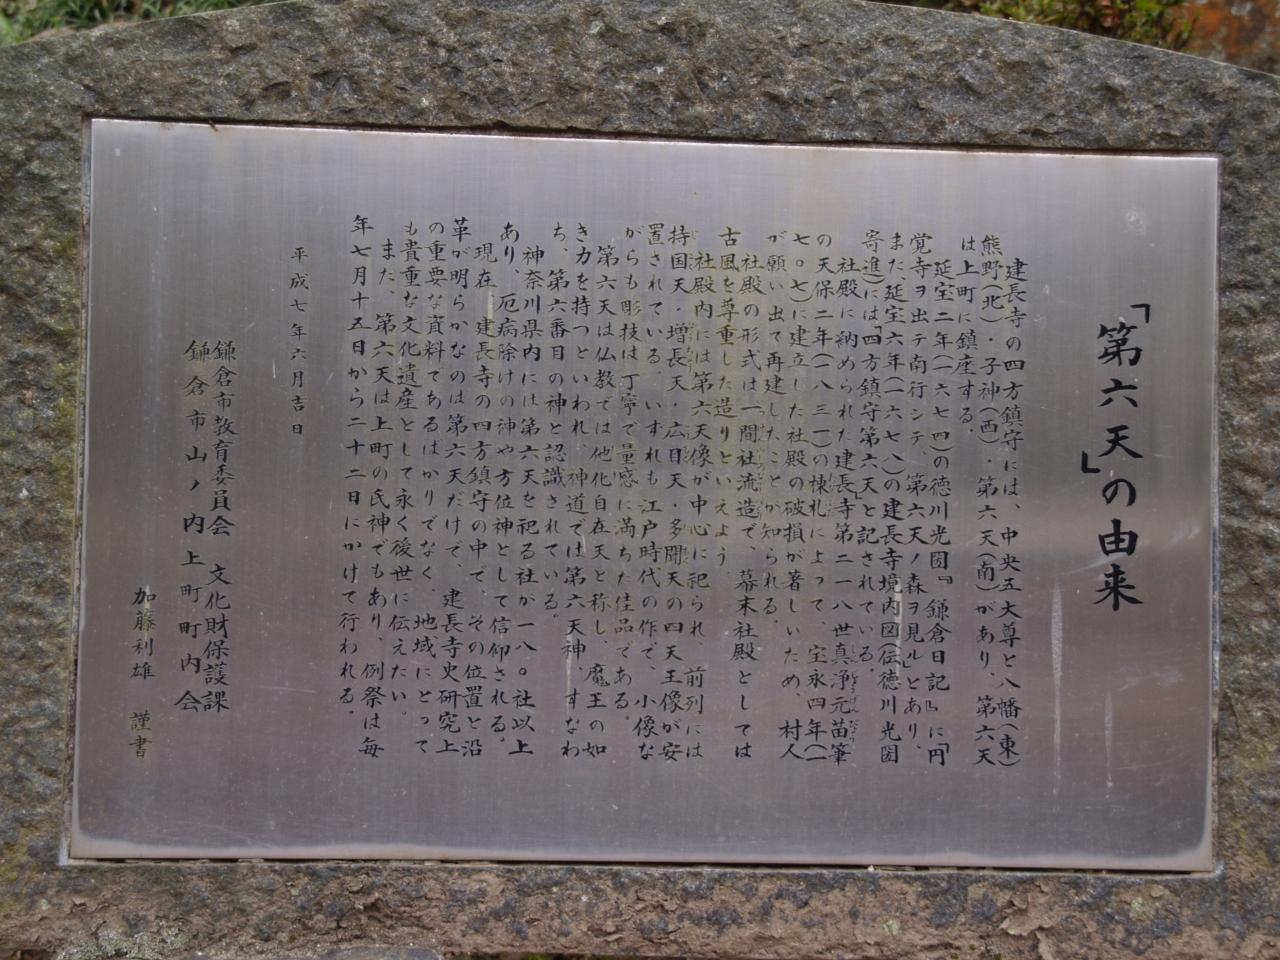 「第六天」の由来
建長寺の四方鎮守には、中央五大尊と八幡(東)
熊野(北)・子神(西)・第六天(南)があり、第六天
は上町に鎮座する。
延宝二年(一六七四)の徳川光圀『鎌倉日記』に「円
覚寺ヲ出テ南行シテ、第六天ノ森ヲ見ル」とあり、
また延宝六年(一六七八)の建長寺境内図(伝徳川光圀
寄進)には「四方鎮守第六天」と記されている。
社殿に納められた建長寺第二一八世真浄元苗筆
の天保二年(一八三一)の棟札によって、宝永四年(一
七〇七)に建立した社殿の破損が著しいため、村人
が願い出て再建したことが知られる。
社殿の形式は一間社流造で、幕末社殿としては
古風を尊重した造りといえよう。
社殿内には第六天像が中心に祀られ、前列には
持国天・増長天・広目天・多聞天の四天王像が安
置されている。いずれも江戸時代の作で、小像な
がらも彫技は丁寧で量感に満ちた佳品である。
第六天は仏教では他化自在天と称し、魔王の如
き力を持つといわれ、神道では第六天神、すなわ
ち、第六番目の神と認識されている。
神奈川県内には第六天を祀る社が一八〇社以上
あり、厄病除けの神や方位神として信仰される。
現在、建長寺の四方鎮守の中で、その位置と沿
革が明らかなのは第六天だけで、建長寺史研究上
の重要な資料であるばかりでなく、地域にとって
も貴重な文化遺産として永く後世に伝えたい。
また、第六天は上町の氏神でもあり、例祭は毎
年七月十五日から二十二日にかけて行われる。
平成七年六月吉日
鎌倉市教育委員会 文化財保護課
鎌倉市山ノ内上町町内会
加藤利雄 謹書